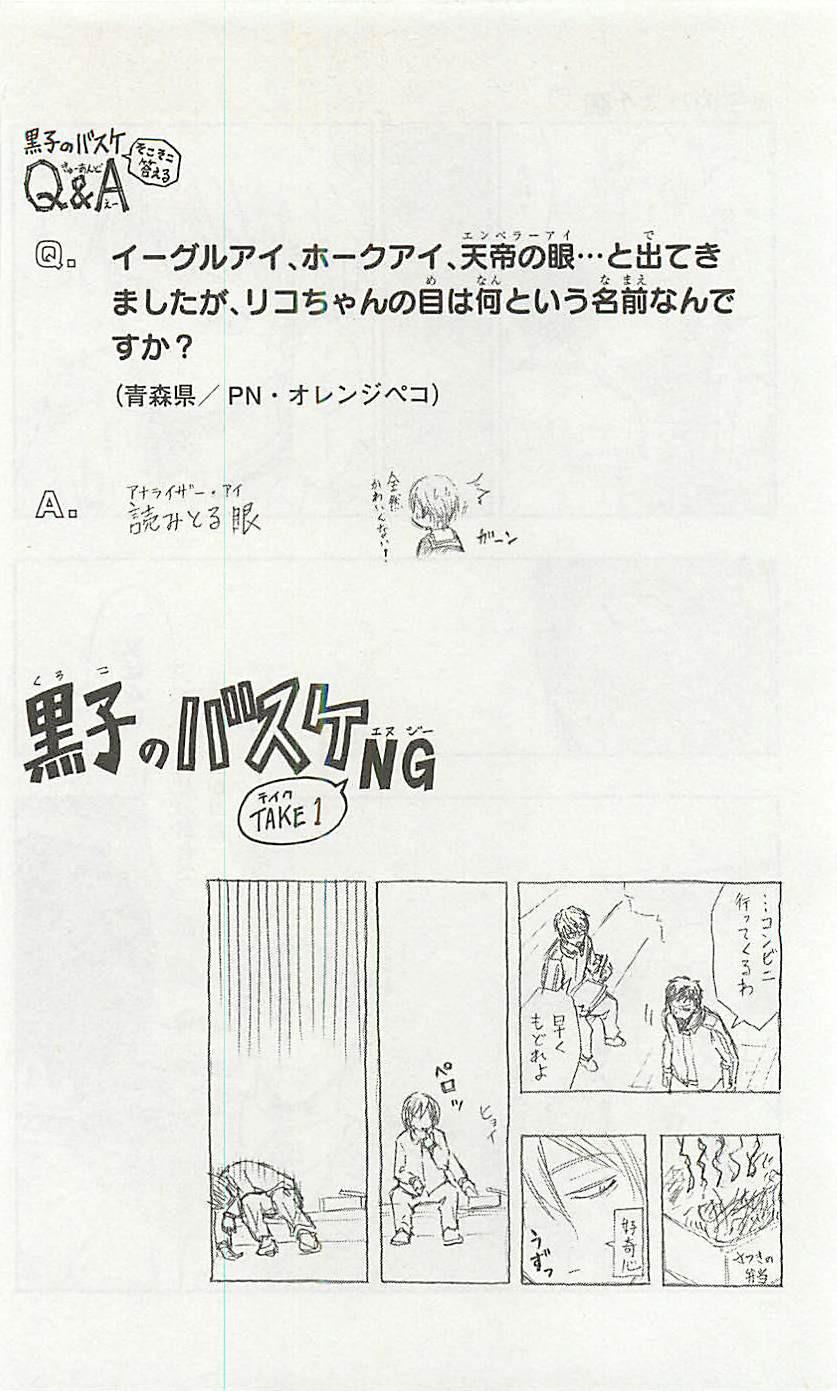 黒子のバスケ
Q&A
きゅーあんど
えー
そこそこ
答える
Q.
イーグルアイ、ホークアイ、天帝の眼…と出てき
ましたが、リコちゃんの目は何という名前なんで
すか？
（青森県／PN・オレンジペコ）
A.
アナライザー・アイ
読みとる眼
全然
かわいくない！
ガーン
黒子のバスケNG
テイク
TAKE 1
…コンビニ
行ってくるわ
早く
もどれよ
さつきの
弁当
好奇心
うずっ
ヒョイ
ペロッ